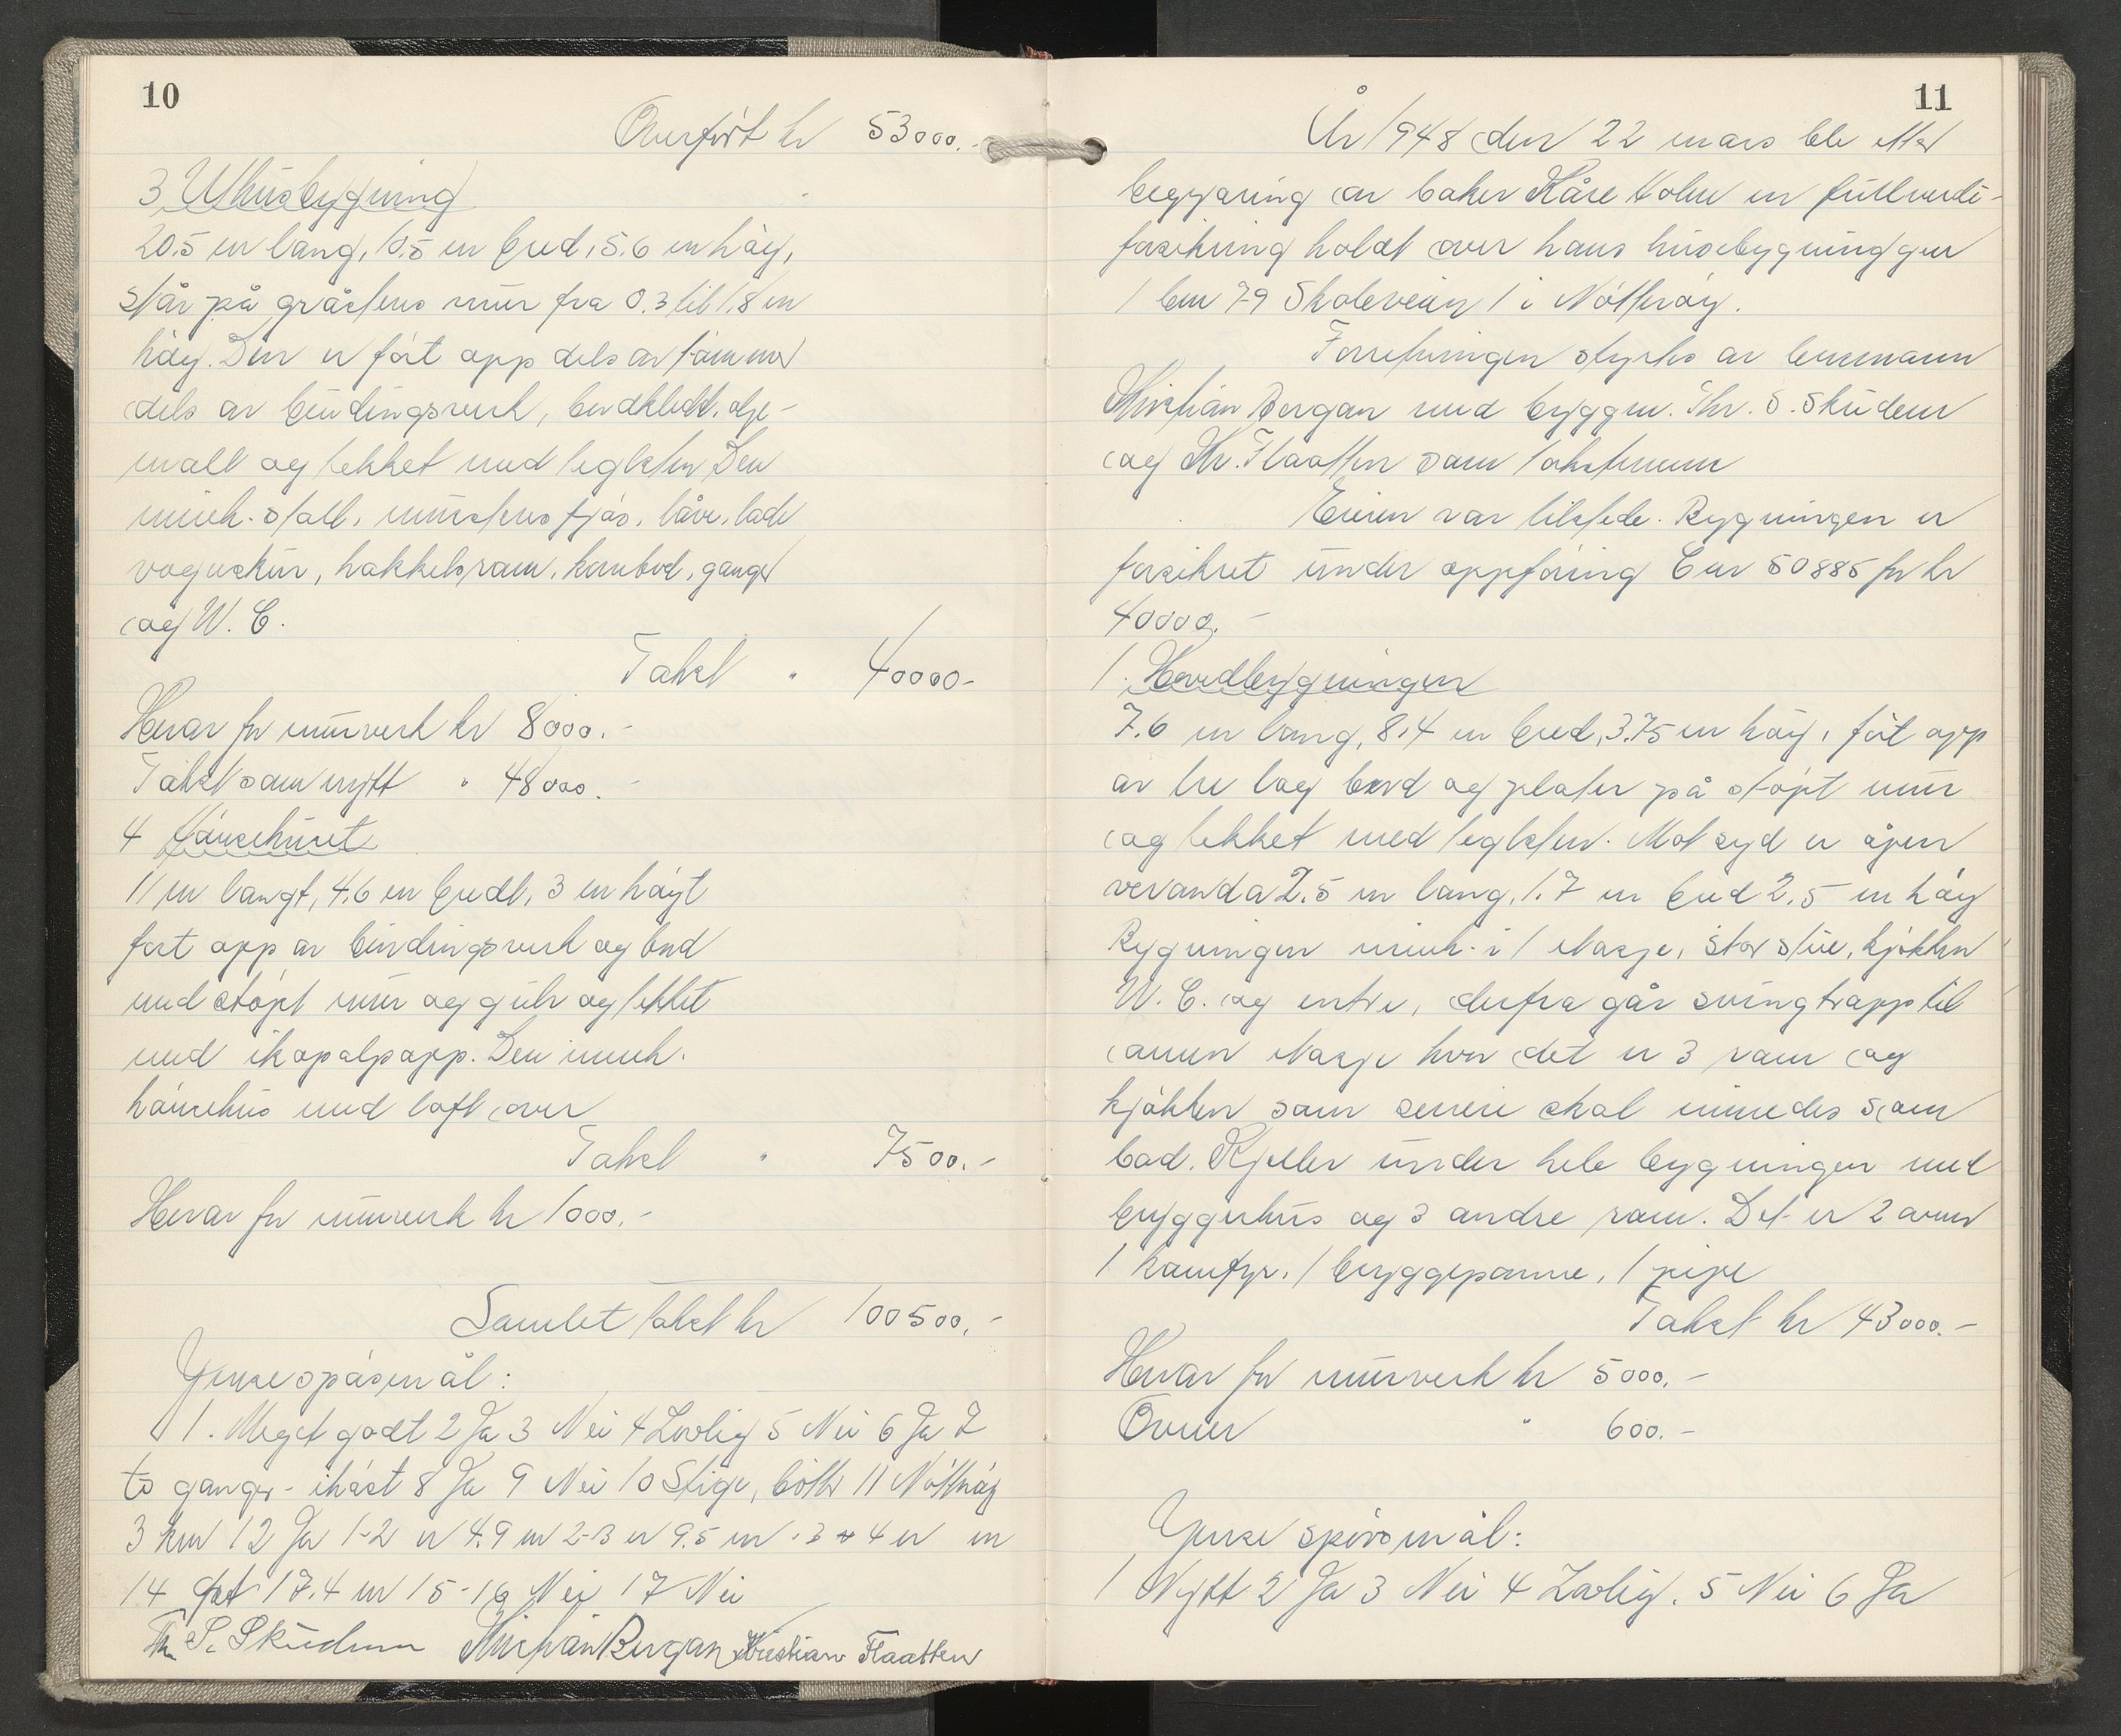 10
Overført kr 53000.-
3 Uthusbygning
20.5 m lang, 10.5 m bred, 5.6 m høy,
står på gråstens mur fra 0.3 til 1.8 m
høy. Den er ført opp dels av tømmer
dels av bindingsverk, bordkledt, olje-
malt og tekket med teglsten Den
inneh. stall, murstens fjøs, låve, lade
vognskur, hakkelsrom, kornbod, ganger
og W. C.
Takst " 40000-
Herav for murverk kr 8000.-
Takst som nytt " 48000.-
4 Hønsehuset
11 m langt, 4.6 m bredt, 3 m høyt
ført opp av bindingsverk og bord
med støpt mur og gulv og tekket
med ikopalpapp. Den inneh.
hønsehus med loft over
Takst " 7500.-
Herav for murverk kr 1000.-
Samlet takst kr 100500.-
Yense spøsmål:
1. Meget godt 2 Ja 3 Nei 4 Lovlig 5 Nei 6 Ja 7
to ganger - ihøst 8 Ja 9 Nei 10 Stige, bøtter 11 Nøtterøy
3 km 12 Ja 1-2 er 4.9 m 2-3 er 9.5 m . 3 & 4 er m
14 17.4 m 15-16 Nei 17 Nei
Th. S. Skudem Kristian Bergan Kristian Flaatten
11
År 1948 den 22 mars ble etter
begjæring av baker Kåre Holm en fullverdi-
forsikring holdt over hans husebygninggen
/ bnr 79 Skoleveien / i Nøtterøy.
Forretningen styrtes av lensmann
Kristian Bergan med byggm. Thr. S. Skudem
og Kr. Flaatten som takstmenn
Eieren var tilstede. Bygningen er
forsikret under oppføring bnr 50885 for kr
40000.-
1. Hovedbygningen
7.6 m lang, 8.4 m bred, 3.75 m høy, ført opp
av tre lag bord og plater på støpt mur
og tekket med teglsten. Mot syd er åpen
veranda 2.5 m lang, 1.7 m bred 2.5 m høy
Bygningen inneh. i 1 etasje, stor stue, kjøkken
W. C. og entre, derfra går svingtrapp til
annen etasje hvor det er 3 rom og
kjøkken som senere skal innredes som
bad. Kjeller under hele bygningen med
bryggerhus og 3 andre rom. Det er 2 ovner
1 komfyr, 1 bryggepanne, 1 pipe
Takst kr 43000.-
Herav for murverk kr 5000.-
Ovner " 600.-
Yense spørsmål:
1 Nytt 2 Ja 3 Nei 4 Lovlig. 5 Nei 6 Ja